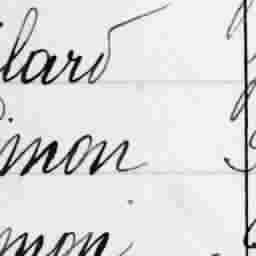 lard
imon
mon